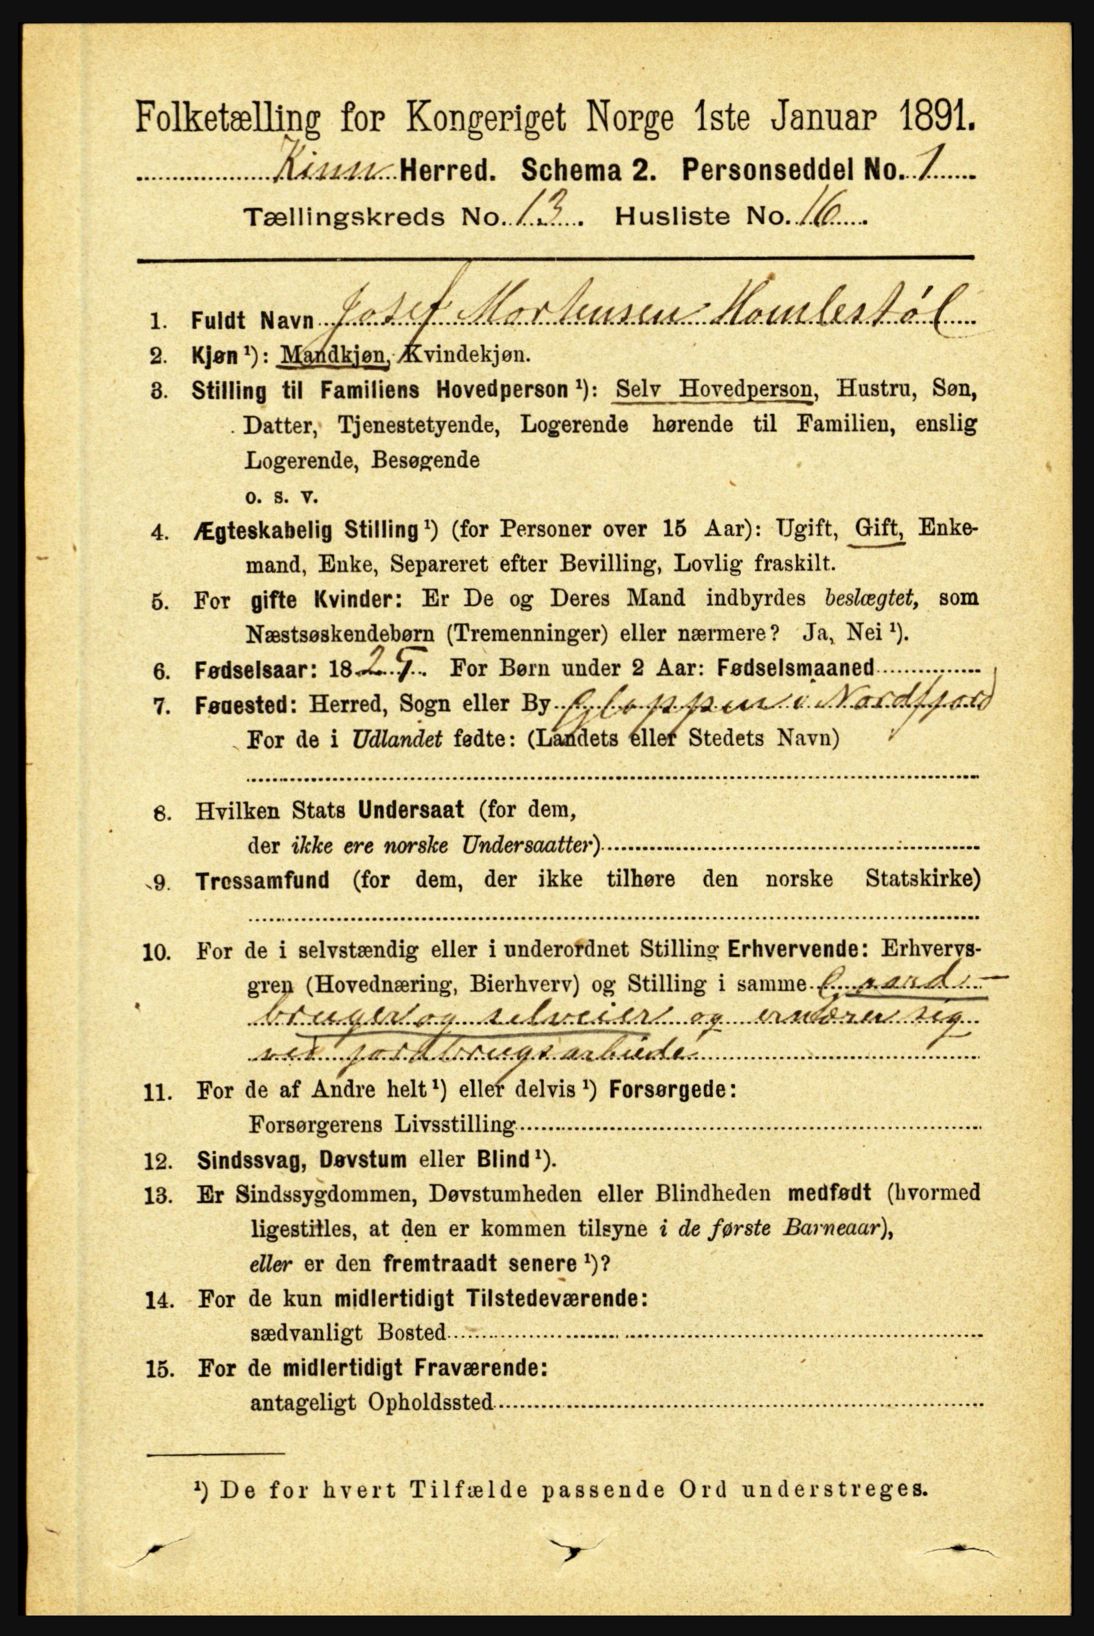 Folketælling for Kongeriget Norge 1ste Januar 1891.
Kinn Herred. Schema 2. Personseddel No. 1
Tællingskreds No. 13. Husliste No. 16.
1. Fuldt Navn Josef Mortensen Homlestøl
2. Kjøn ¹): Mandkjøn, Kvindekjøn.
3. Stilling til Familiens Hovedperson ¹): Selv Hovedperson, Hustru, Søn,
Datter, Tjenestetyende, Logerende hørende til Familien, enslig
Logerende, Besøgende
o. s. v.
4. Ægteskabelig Stilling ¹) (for Personer over 15 Aar): Ugift, Gift, Enke-
mand, Enke, Separeret efter Bevilling, Lovlig fraskilt.
5. For gifte Kvinder: Er De og Deres Mand indbyrdes beslægtet, som
Næstsøskendebørn (Tremenninger) eller nærmere? Ja, Nei ¹).
6. Fødselsaar: 1825. For Børn under 2 Aar: Fødselsmaaned
7. Føuested: Herred, Sogn eller By Gloppen i Nordfjord
For de i Udlandet fødte: (Landets eller Stedets Navn)
8. Hvilken Stats Undersaat (for dem,
der ikke ere norske Undersaatter)
9. Trossamfund (for dem, der ikke tilhøre den norske Statskirke)
10. For de i selvstændig eller i underordnet Stilling Erhvervende: Erhvervs-
gren (Hovednæring, Bierhverv) og Stilling i samme Gaard-
bruger og selveier og ernærer sig
ved jordbrugsarbeide
11. For de af Andre helt ¹) eller delvis ¹) Forsørgede:
Forsørgerens Livsstilling
12. Sindssvag, Døvstum eller Blind ¹).
13. Er Sindssygdommen, Døvstumheden eller Blindheden medfødt (hvormed
ligestilles, at den er kommen tilsyne i de første Barneaar),
eller er den fremtraadt senere ¹)?
14. For de kun midlertidigt Tilstedeværende:
sædvanligt Bosted
15. For de midlertidigt Fraværende:
antageligt Opholdssted
¹) De for hvert Tilfælde passende Ord understreges.